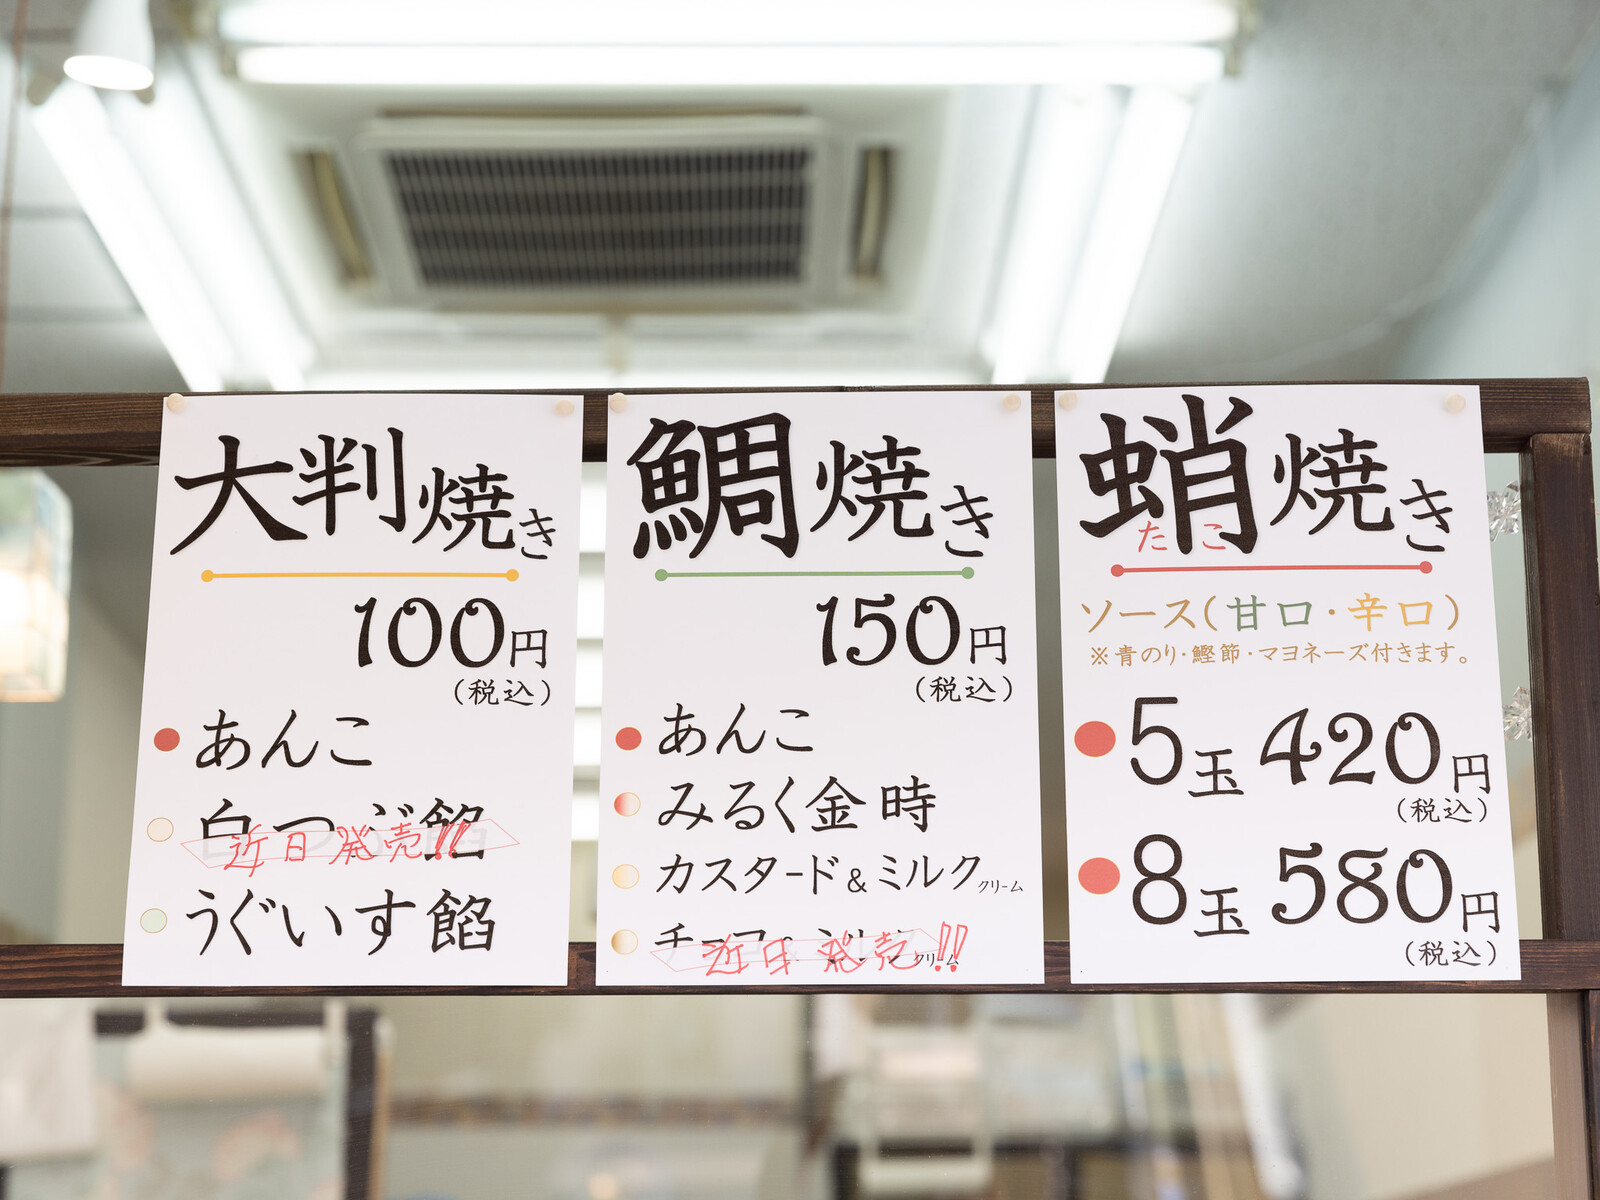 大判焼き
100円
(税込)
あんこ
白つぶ餡
近日発売!!
うぐいす餡
鯛焼き
150円
(税込)
あんこ
みるく金時
カスタード&ミルククリーム
クリーム
近日発売!!
蛸焼き
たこ
ソース(甘口・辛口)
※青のり・鰹節・マヨネーズ付きます。
5玉 420円
(税込)
8玉 580円
(税込)